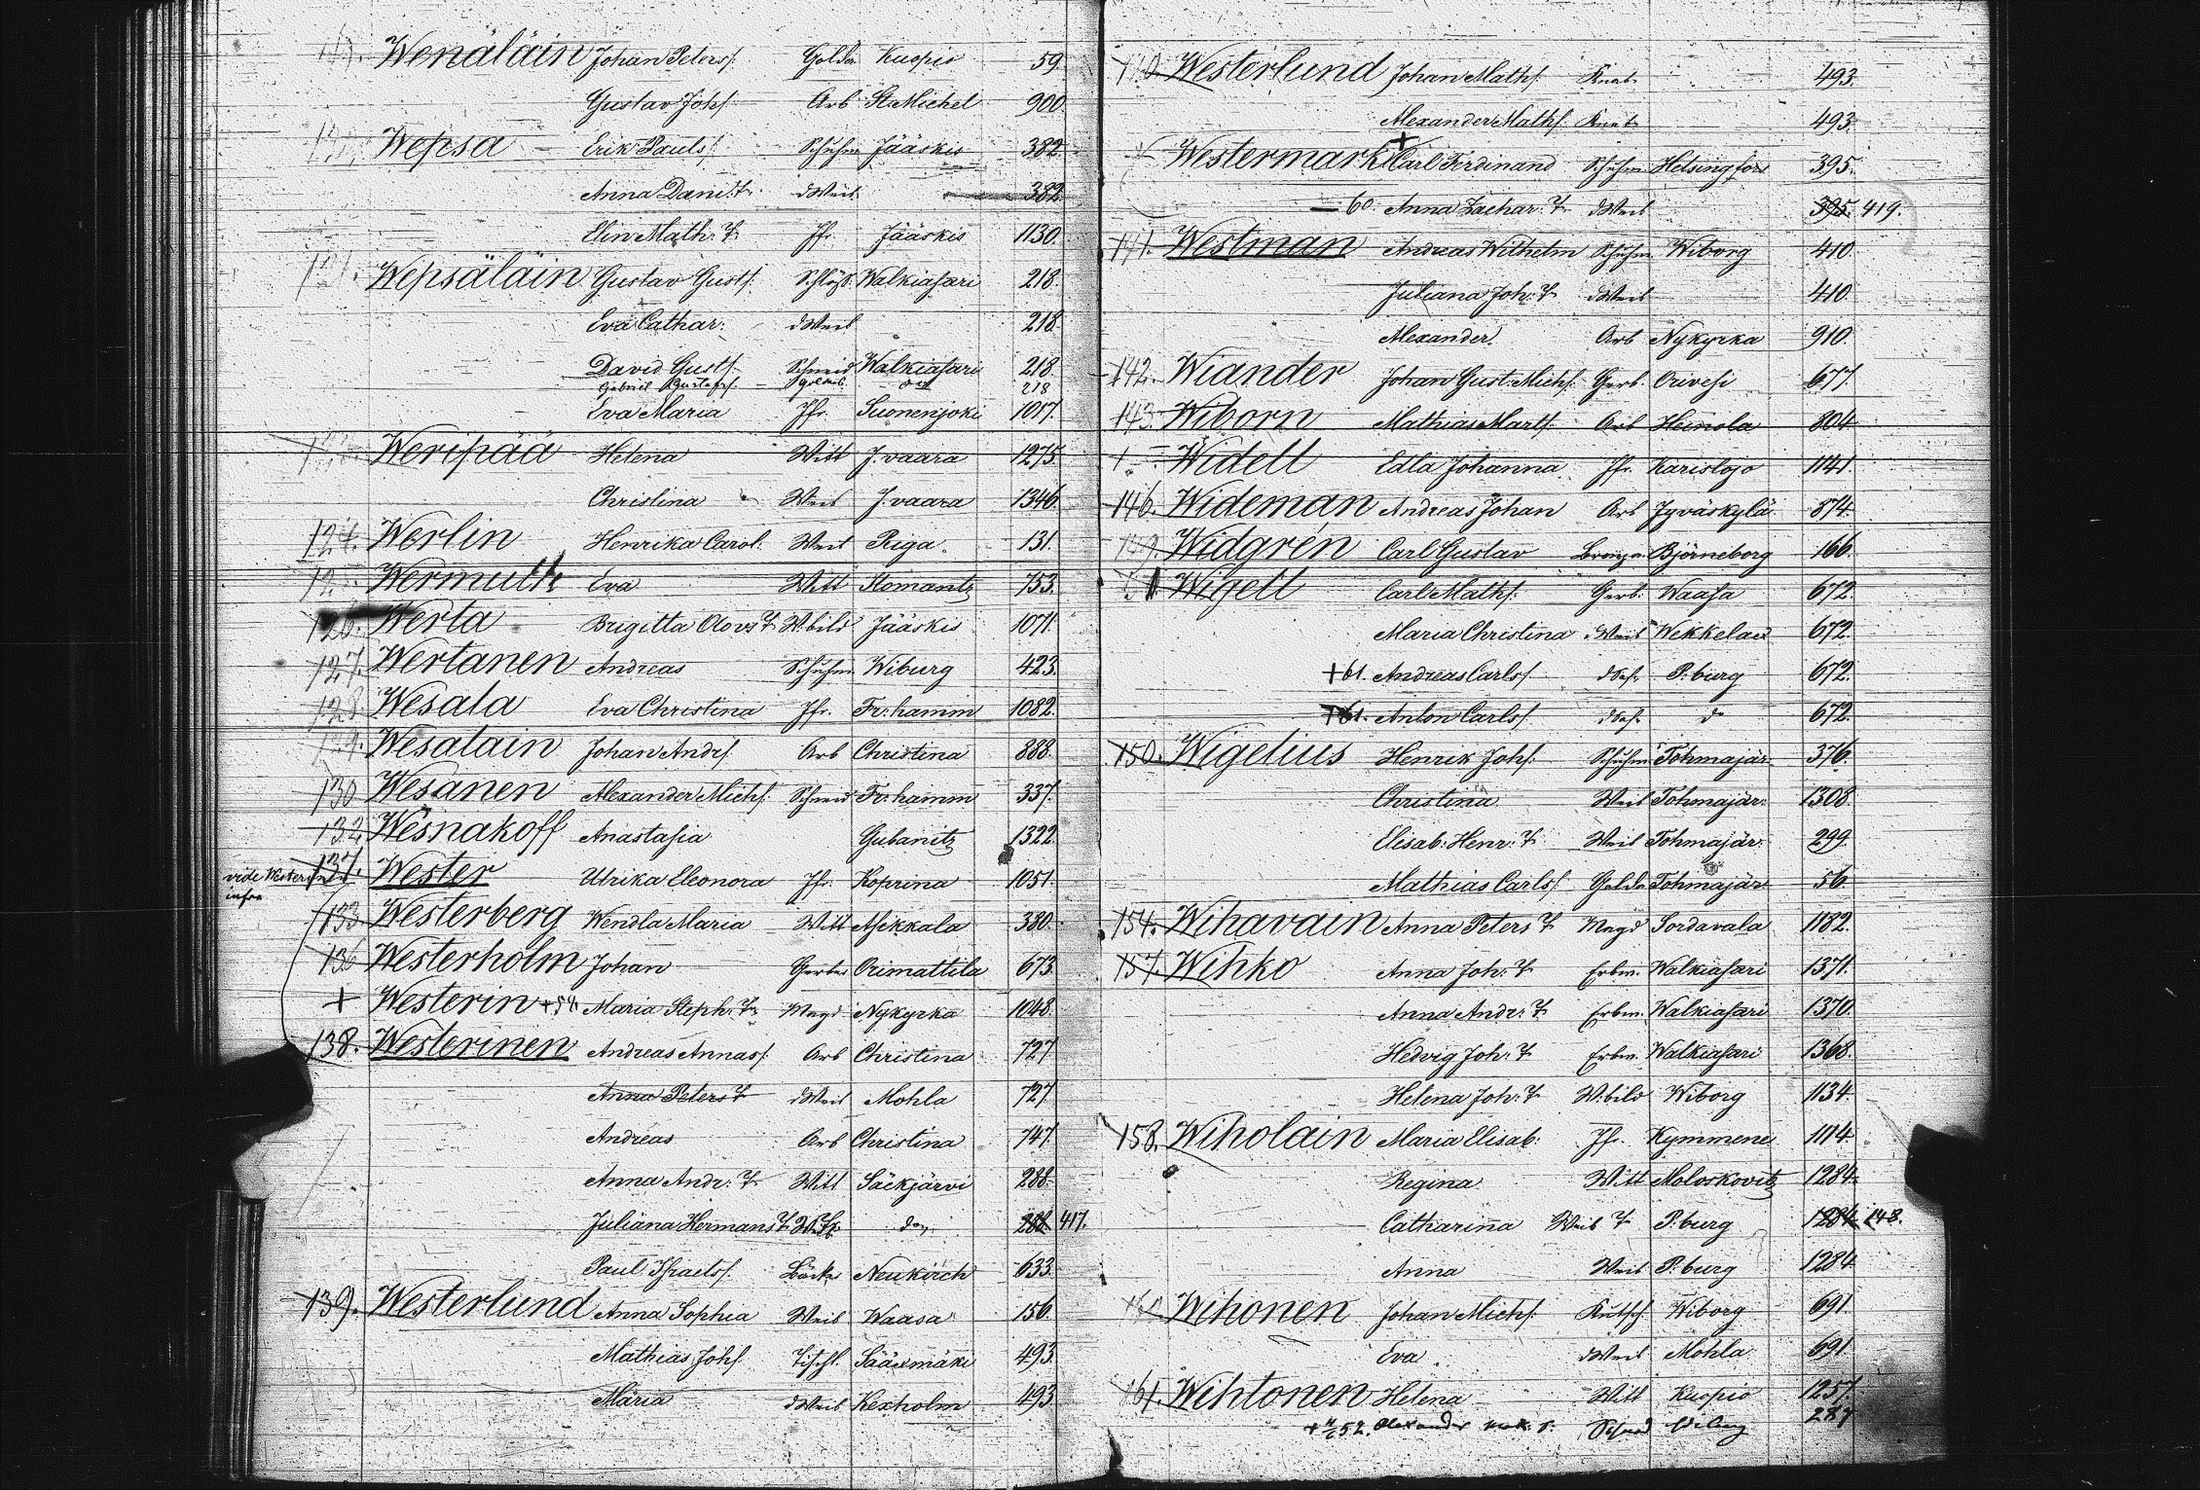 Wenäläin Johan Peterss. Golda Kuopio 59
Gustav Johs. Arb St. Michel 900.
Wepsa Erik Pauls. Schuhm Jääskis 382
Anna Dani: T. dWeib 382
Elin Math: T. Jfr. Jääskis 1130.
Wepsäläin Gustav Gusts. Schloss. Walkiasari 218.
Eva Cathar: dWeib 218
David Gusts. Schneid Walkiasari 218.
Gabriel Gustafss. 218
Eva Maria Jfr. Suonenjoki 1017.
Weripää Helena Witt J.vaara 1275.
Christina Weib J.vaara 1346.
124. Werlin Henrika Carol: Weib Riga. 131.
Wermuth Eva Witt Ilomantz 753.
126. Werta Brigitta Olovs T. W.bild Jääskis 1071.
127. Wertanen Andreas Schuhm. Wiburg 423.
128. Wesala Eva Christina Jfr. Fr:hamm 1082.
129. Wesalain Johan Andrs. Arb Christina 888.
130 Wesanen Alexander Michs. Schneid Fr:hamm 337.
132. Wesnakoff Anastasia Gubanitz 1322.
vide Westerinen 137. Wester Ulrika Eleonora Jfr. Koprina 1051.
infra
133. Westerberg Wendla Maria Witt Asikkala 380.
136 Westerholm Johan Gerber Orimattila 673.
+ Westerin +54 Maria Steph: T. Magd Nykyrka 1048.
138. Westerinen Andreas Annass. Arb Christina 727
Anna Peters T. dWeib Mohla 727
Andreas Arb Christina 747.
Anna Andr: T. Witt Säckjärvi 288.
Juliana Hermans T. do 288 417.
Paul Israels. Bäcker Neukirch 633.
139. Westerlund Anna Sophia Weib Waasa 156.
Mathias Johs. Tischl. Sääxmäki 493
Maria dWeib Kexholm 493
140. Westerlund Johan Maths. Knab. 493.
Alexander Maths. Knab. 493.
Westermark + Carl Ferdinand Schuhm Helsingfors 395.
– 60. Anna Zachar: T. dWeib 395. 419.
141. Westman Andreas Wilhelm Schuhm Wiborg 410
Juliana Joh: T. dWeib 410.
Alexander. Arb Nykyrka 910.
142. Wiander Johan Gust: Michs. Gerb. Orivesi 677.
143. Wiborn Mathias Marts. Arb Heinola 804
Widell Edla Johanna Jfr. Karislojo 1141.
146. Wideman Andreas Johan Arb Jyväskylä 874.
149. Widgrén Carl Gustav Björneborg 166.
Wigell Carl Maths. Gerb. Waasa 672.
Maria Christina dWeib Wekkelax 672.
+61. Andreas Carls. P.burg 672.
+61. Anton Carls. d 672.
150. Wigelius Henrik Johs. Schuhm Tohmajär 376.
Christina Weib Tohmajär: 1308.
Elisab: Henr: T. Weib Tohmajär: 299.
Mathias Carls. Golda Tohmajär 56.
154. Wihavain Anna Peters T. Magd Sordavala 1182.
157. Wihko Anna Joh: T. Erbm. Walkiasari 1371.
Anna Andr: T. Erbm. Walkiasari 1370.
Hedvig Joh: T. Erbm. Walkiasari 1368.
Helena Joh: T. W.bild Wiborg 1134.
158. Wiholain Maria Elisab: Jfr. Kymmene 1114.
Regina Witt Moloskovitz 1284.
Catharina Weib T. P.burg 1284 148.
Anna Weib P.burg 1284
160. Wihonen Johan Michs. Kutsch Wiborg 691.
Eva dWeib Mohla 691
161. Wihtonen Helena Witt Kuopio 1257.
52. Alexander Wiburg 287